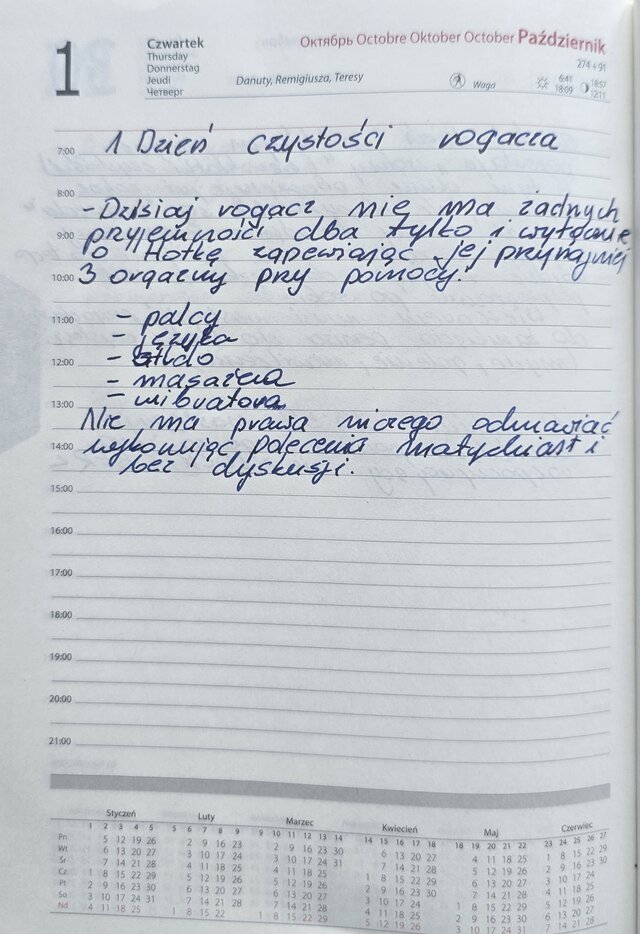 1
Czwartek
Thursday
Donnerstag
Jeudi
Четверг
Октябрь Octobre Oktober October Październik
274+91
Danuty, Remigiusza, Teresy
Waga
6:41
18:09
18:57
12:11
1 Dzień czystości rogacza
7:00
8:00
- Dzisiaj rogacz nie ma żadnych
9:00
przyjemności dba tylko i wyłącznie
o Hotkę zapewiając jej przynajmniej
10:00
3 orgazmy przy pomocy:
11:00
- palcy
- języka
12:00
- dildo
- masażera
13:00
- wibratora
Nie ma prawa niczego odmawiać
14:00
wykonując polecenia natychmiast i
bez dyskusji.
15:00
16:00
17:00
18:00
19:00
20:00
21:00
Styczeń Luty Marzec Kwiecień Maj Czerwiec
1 2 3 4 5 5 6 7 8 9 9 10 11 12 13 14 14 15 16 17 18 18 19 20 21 22 23 24 25 26 27
Pn 5 12 19 26 2 9 16 23 2 9 16 23 30 6 13 20 27 4 11 18 25 1 8 15 22 29
Wt 6 13 20 27 3 10 17 24 3 10 17 24 31 7 14 21 28 5 12 19 26 2 9 16 23 30
Śr 7 14 21 28 4 11 18 25 4 11 18 25 1 8 15 22 29 6 13 20 27 3 10 17 24
Cz 1 8 15 22 29 5 12 19 26 5 12 19 26 2 9 16 23 30 7 14 21 28 4 11 18 25
Pt 2 9 16 23 30 6 13 20 27 6 13 20 27 3 10 17 24 1 8 15 22 29 5 12 19 26
So 3 10 17 24 31 7 14 21 28 7 14 21 28 4 11 18 25 2 9 16 23 30 6 13 20 27
Nd 4 11 18 25 1 8 15 22 1 8 15 22 29 5 12 19 26 3 10 17 24 31 7 14 21 28